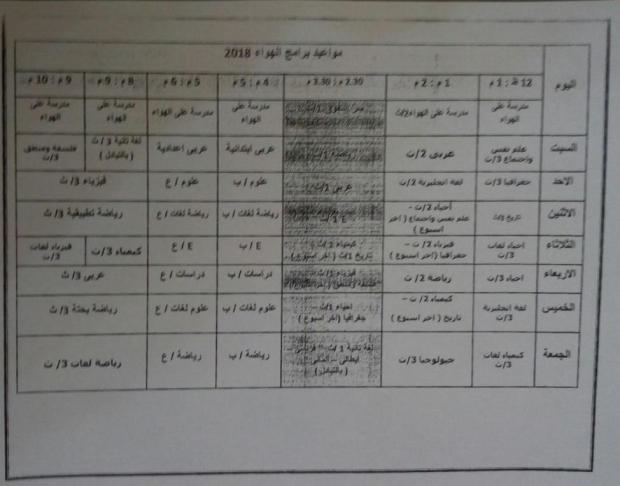 مواعيد برامج الهواء 2018
اليوم
12 ظ : 1 م
1 م : 2 م
2.30 م : 3.30 م
4 م : 5 م
5 م : 6 م
8 م : 9 م
9 م : 10 م
مدرسة على الهواء
مدرسة على الهواء 2/ث
مدرسة على الهواء
مدرسة على الهواء
مدرسة على الهواء
مدرسة على الهواء
السبت
علم نفس واجتماع 3/ث
عربى 2/ث
عربى ابتدائية
عربى اعدادية
لغة ثانية 3/ ث
( بالتبادل )
فلسفة ومنطق 3/ث
الاحد
جغرافيا 3/ث
لغة انجليزية 2/ث
عربى 1/ث
علوم / ب
علوم / ع
فيزياء 3/ ث
الاثنين
تاريخ 3/ث
أحياء 2/ ث –
علم نفس واجتماع ( اخر اسبوع )
E 1/ث
رياضة لغات / ب
رياضة لغات / ع
رياضة تطبيقية 3/ ث
الثلاثاء
احياء لغات 3/ث
فيزياء 2/ ث –
جغرافيا ( اخر اسبوع )
كيمياء 1/ ث –
تاريخ 1/ث ( اخر اسبوع )
E / ب
E / ع
كيمياء 3/ ث
فيزياء لغات 3/ث
الاربعاء
احياء 3/ث
رياضة 2/ ث
فيزياء 1/ث
دراسات / ب
دراسات / ع
عربى 3/ ث
الخميس
لغة انجليزية 3/ث
كيمياء 2/ ث –
تاريخ ( اخر اسبوع )
احياء 1/ث –
جغرافيا ( اخر اسبوع )
علوم لغات / ب
علوم لغات / ع
رياضة بحتة 3/ ث
الجمعة
كيمياء لغات 3/ث
جيولوجيا 3/ث
لغة ثانية 1/ ث – فرنسى
ايطالى – المانى
( بالتبادل )
رياضة / ب
رياضة / ع
رياضة لغات 3/ ث